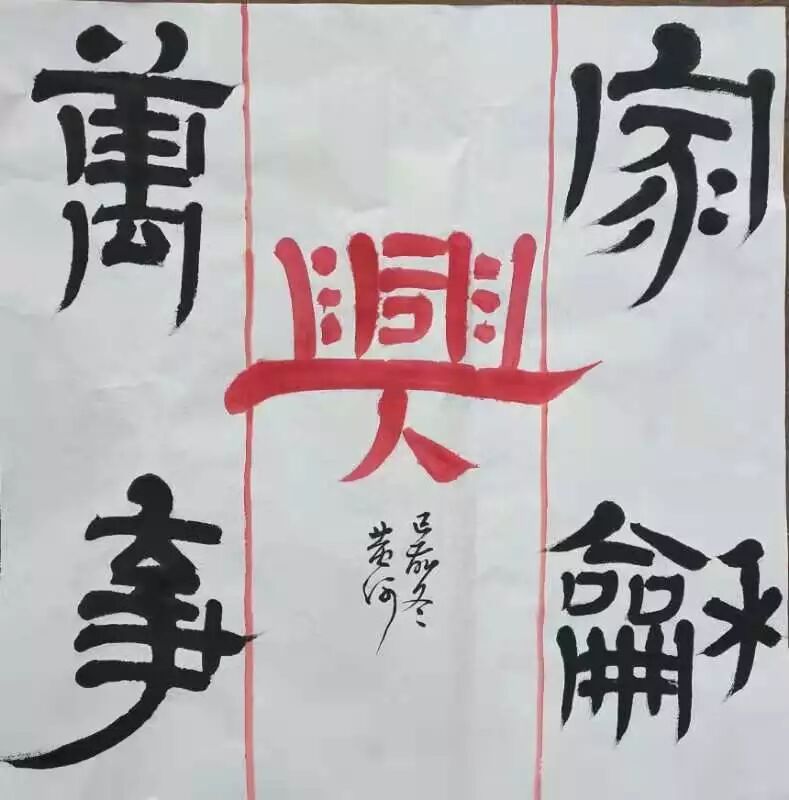 家龢
萬事
興
己亥冬
黄河